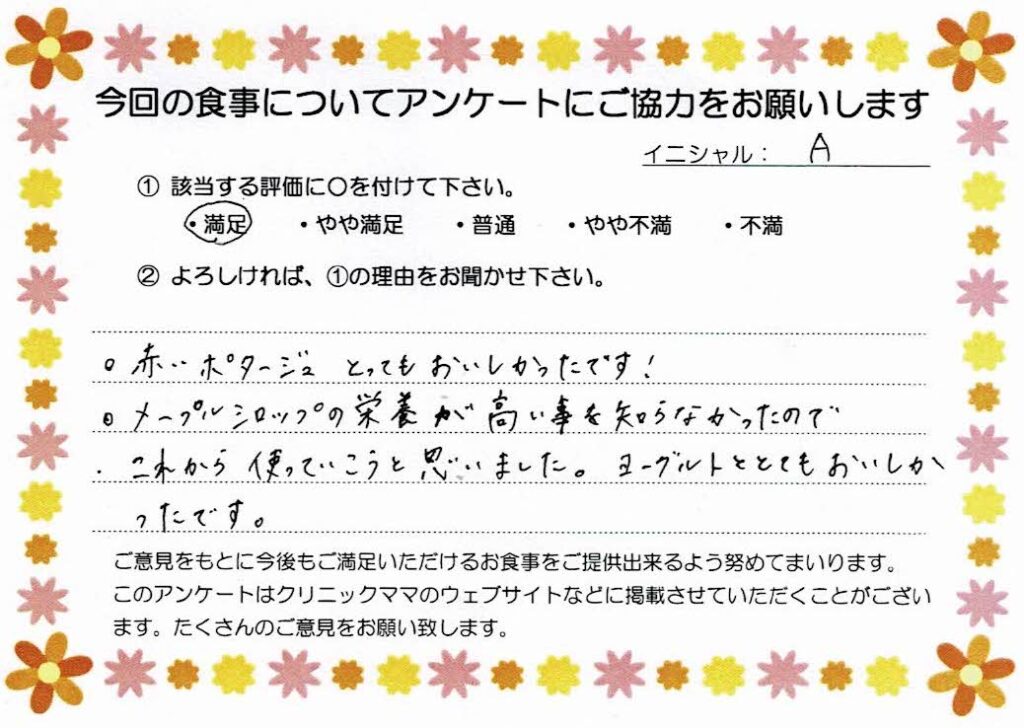 今回の食事についてアンケートにご協力をお願いします
イニシャル： A
① 該当する評価に〇を付けて下さい。
・満足 ・やや満足 ・普通 ・やや不満 ・不満
② よろしければ、①の理由をお聞かせ下さい。
○ 赤いポタージュ とってもおいしかったです！
○ メープルシロップの栄養が高い事を知らなかったので
・ これから使っていこうと思いました。ヨーグルトととてもおいしか
ったです。
ご意見をもとに今後もご満足いただけるお食事をご提供出来るよう努めてまいります。
このアンケートはクリニックママのウェブサイトなどに掲載させていただくことがござい
ます。たくさんのご意見をお願い致します。